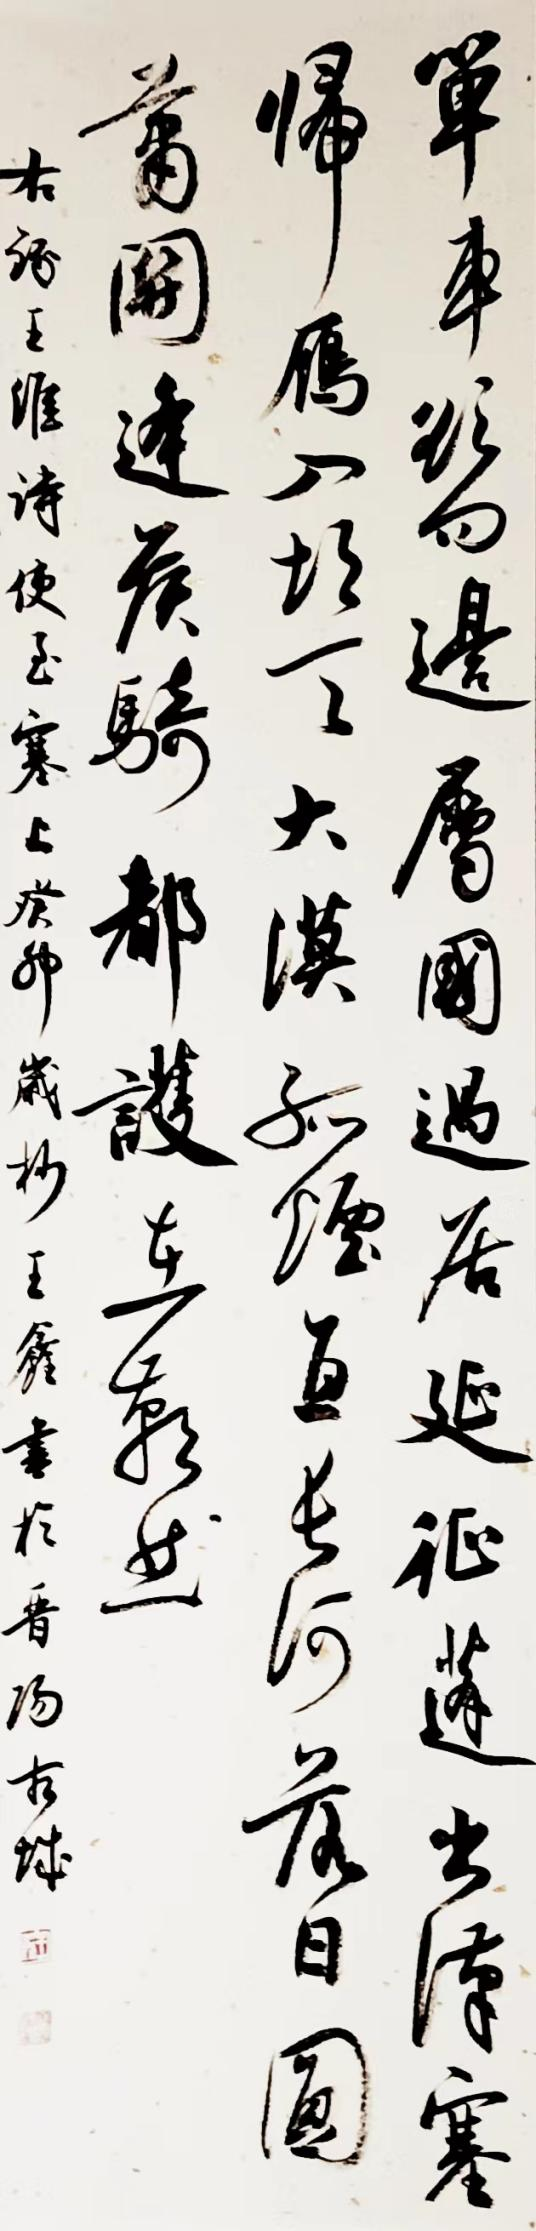 單車欲問邊屬國過居延征蓬出漢塞
歸鴈入胡天大漠孤煙直長河落日圓
蕭關逢候騎都護在燕然
右錄王維詩使至塞上癸卯歲杪王鑫書於晉陽古城